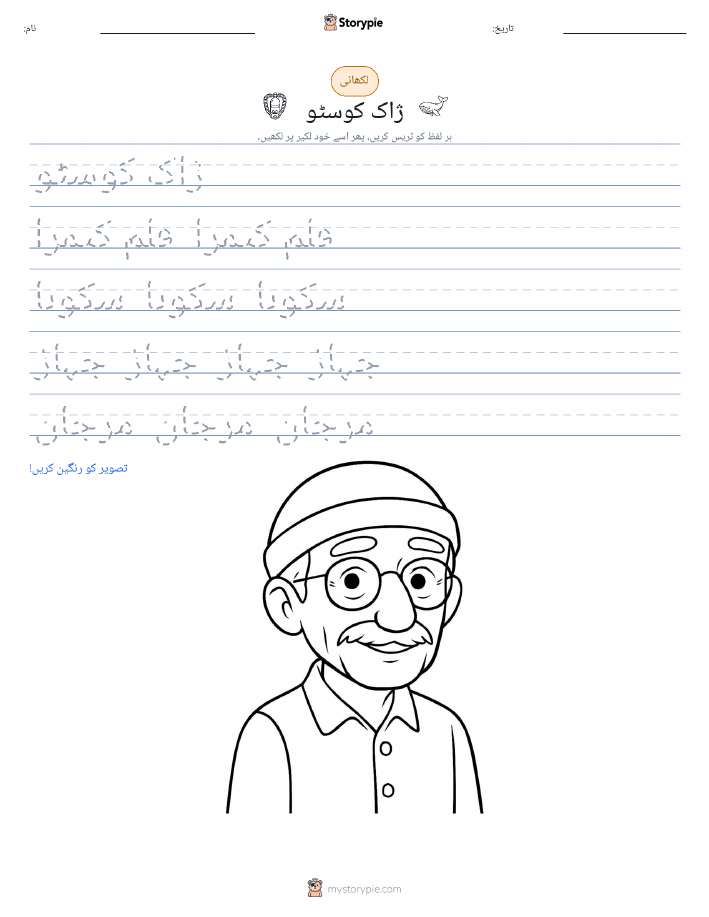 نام:
Storypie
تاریخ:
لکھائی
ژاک کوسٹو
ہر لفظ کو ٹریس کریں، پھر اسے خود لکیر پر لکھیں۔
ژاک کوسٹو
فلم کیمرا فلم کیمرا
سکوبا سکوبا سکوبا
جہاز جہاز جہاز جہاز
مرجان مرجان مرجان
تصویر کو رنگین کریں!
mystorypie.com